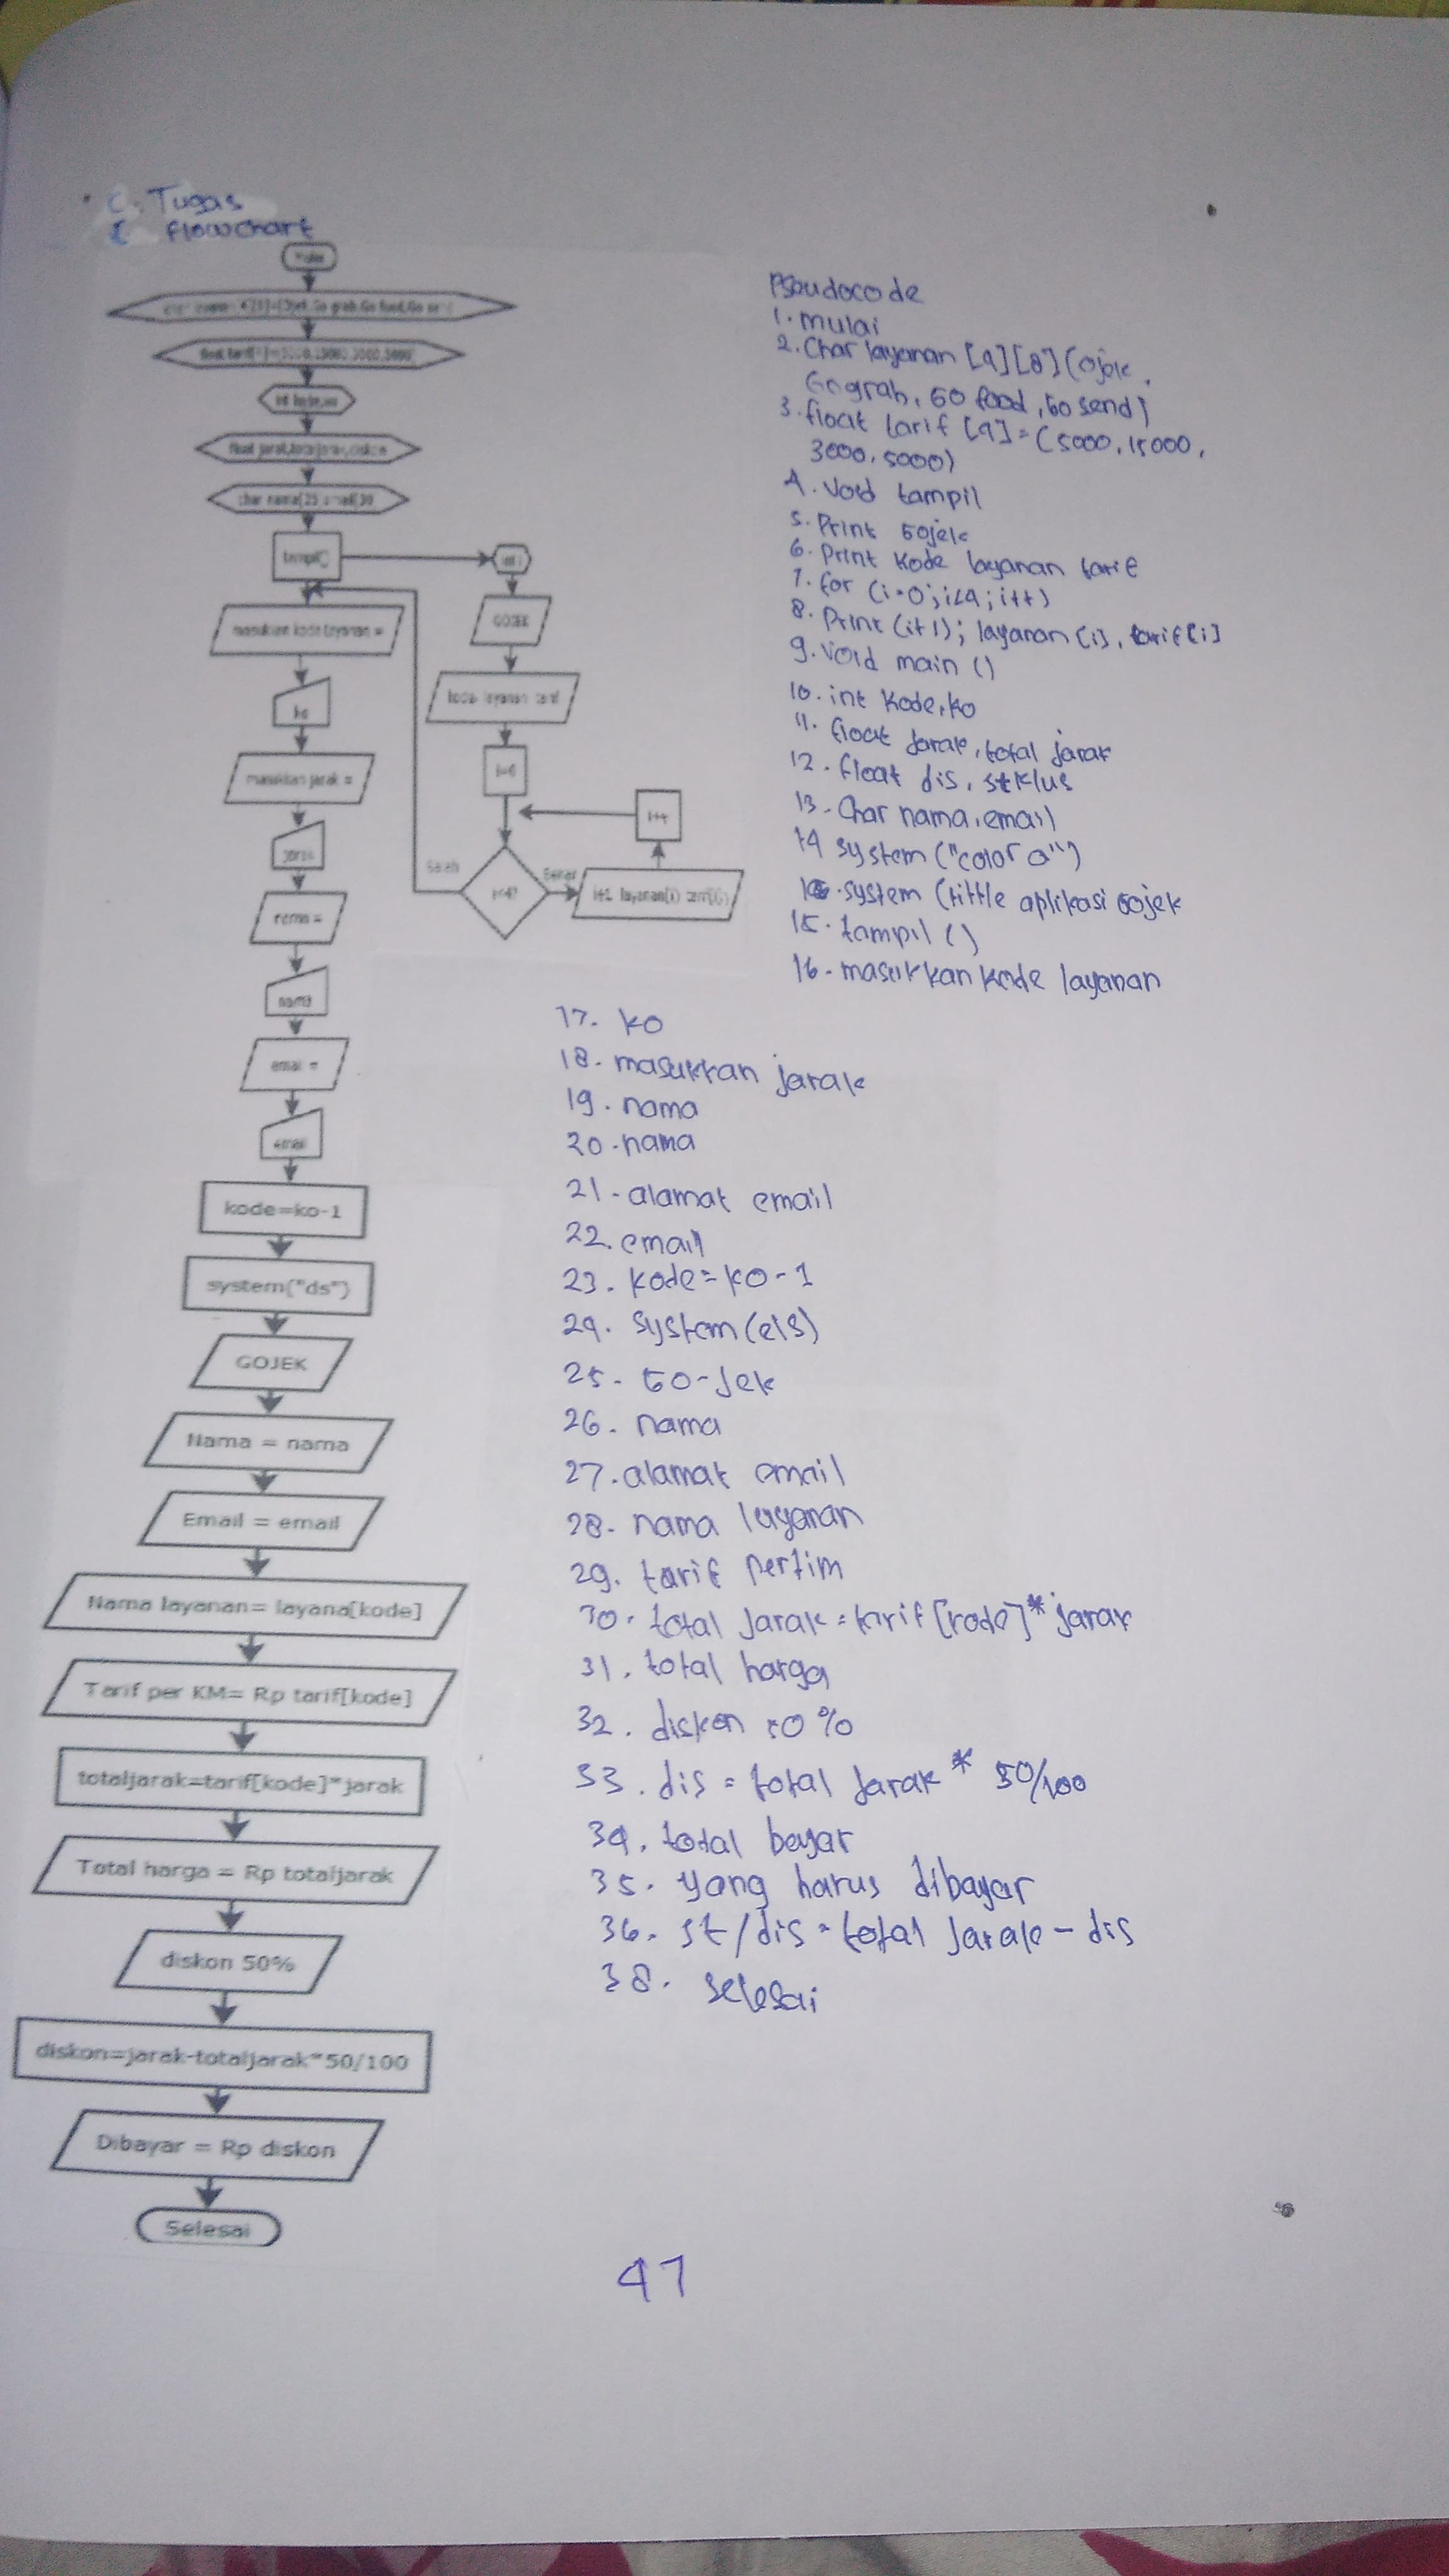 C. Tugas
Flowchart
Mulai
int kode,ko
tampil()
masukkan kode layanan =
ko
masukkan jarak =
jarak
nama =
nama
email =
email
int i
GOJEK
kode layanan tarif
i=0
i<4?
Salah
Benar
i++
i+1 layanan(i) tarif(i)
kode=ko-1
system("ds")
GOJEK
Nama = nama
Email = email
Nama layanan= layana[kode]
Tarif per KM= Rp tarif[kode]
totaljarak=tarif[kode]*jarak
Total harga = Rp totaljarak
diskon 50%
diskon=jarak-totaljarak*50/100
Dibayar = Rp diskon
Selesai
Pseudocode
1. mulai
2. Char layanan [4][8] (Ojek,
Go grab, Go food, Go send)
3. float tarif [4] = (5000, 15000,
3000, 5000)
4. Void tampil
5. Print Gojek
6. Print kode layanan tarif
7. for (i=0; i<4; i++)
8. Print (i+1); layanan [i], tarif [i]
9. Void main ()
10. int kode, ko
11. float jarak, total jarak
12. float dis,
13. Char nama, email
14 system ("color a")
system (tittle aplikasi Gojek
15. tampil ()
16. masukkan kode layanan
17. ko
18. masukkan jarak
19. nama
20. nama
21. alamat email
22. email
23. kode = ko - 1
24. system (cls)
25. Go-Jek
26. nama
27. alamat email
28. nama layanan
29. tarif
30. total jarak = tarif [kode] * jarak
31. total harga
32. diskon 50 %
33. dis = total jarak * 50/100
34. total bayar
35. yang harus dibayar
36. st/dis = total Jarak - dis
38. selesai
47